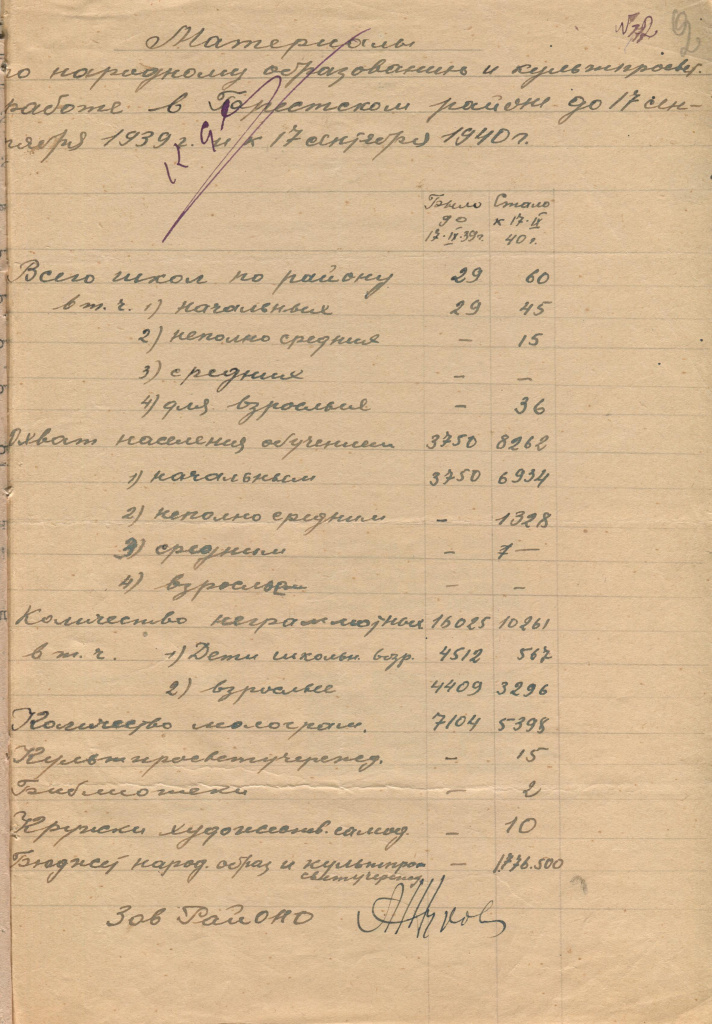 № 72 2
Материалы
по народному образованию и культпросвет.
работе в Брестском районе до 17 сен-
тября 1939 г. и к 17 сентября 1940 г.
Было до 17·IX·39г. Стало к 17·IX 40 г.
Всего школ по району 29 60
в т. ч. 1) начальных 29 45
2) неполно средния – 15
3) средних – –
4) для взрослыя – 36
Охват населения обучением 3750 8262
1) начальным 3750 6934
2) неполно средним – 1328
3) средним – –
4) взрослым – –
Количество неграмотных 16025 10261
в т. ч. 1) Дети школьн. возр. 4512 567
2) взрослые 4409 3296
Количество малограм. 7104 5398
Культпросветучережд. – 15
Библиотеки – 2
Кружки художеств. самод. – 10
Бюджет народ. образ и культпро- – 1.776.500
светучережд
Зав РайОНО АЖуков